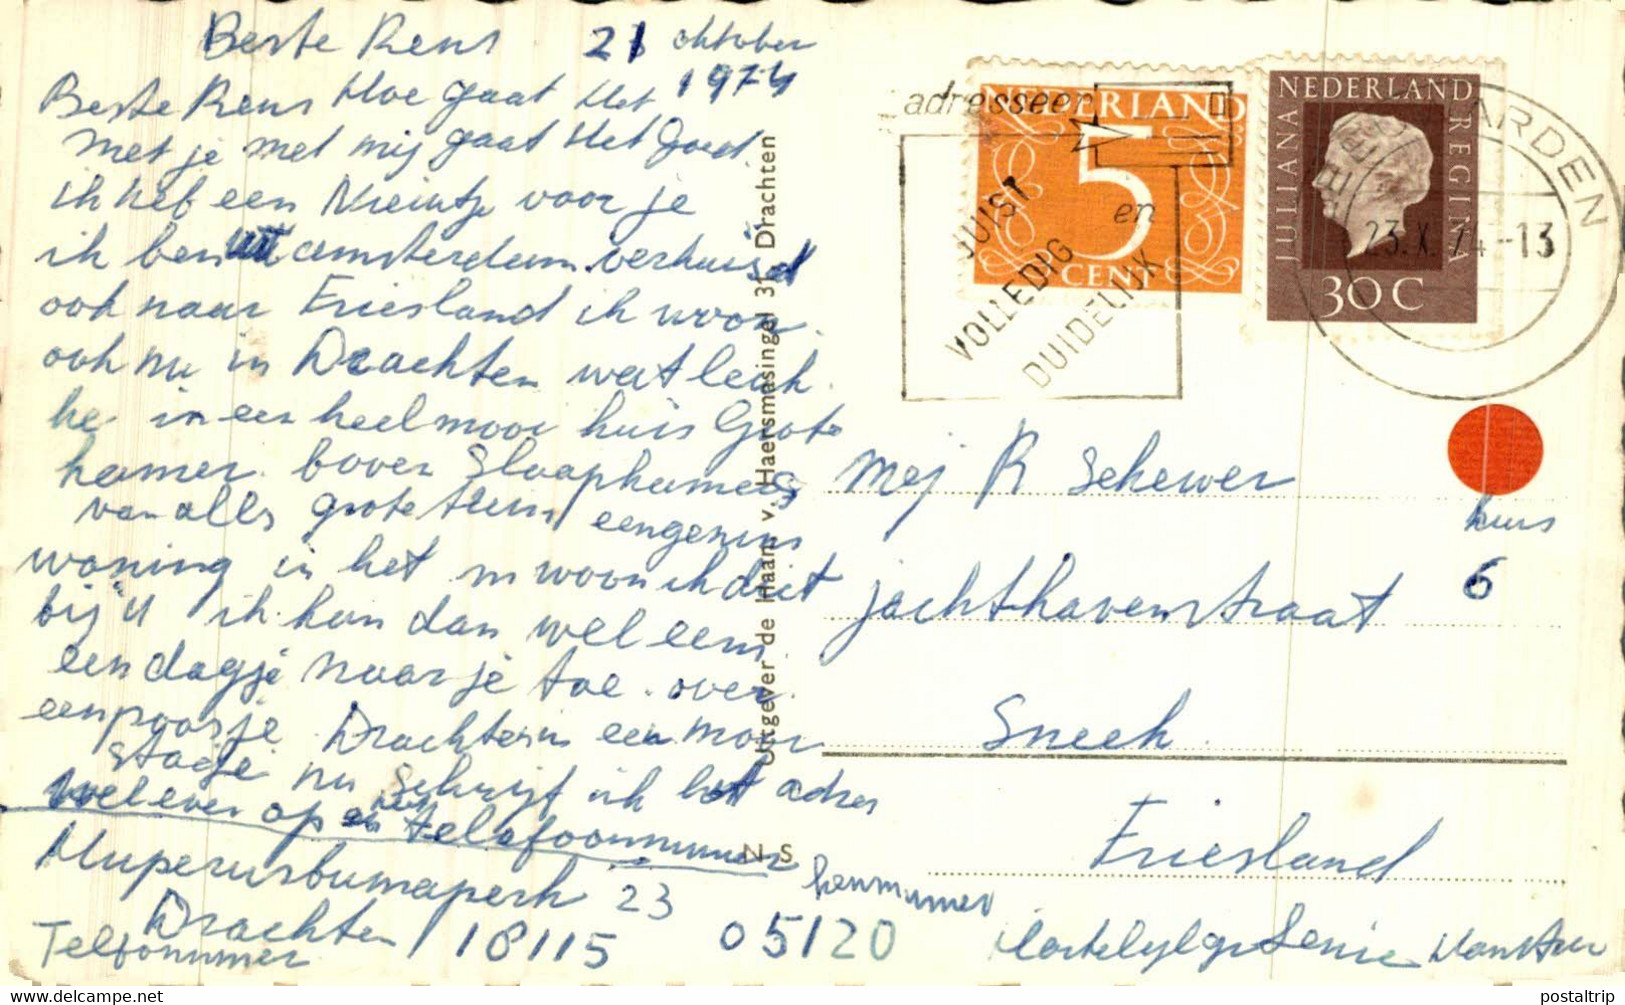 Beste Rens 21 oktober
1974
Beste Rens Hoe gaat Het
Met je met mij gaat Het Goed.
ik heb een Nieuwtje voor je
ik ben uit amsterdam verhuisd
ook naar Friesland ik woon
ook nu in Drachten wat leuk
he in een heel mooi huis Grote
kamer boven Slaapkamers
van alles grote tuin eengezins
woning in het woon ik dict
bij U ik kan dan wel eens
een dagje naar je toe over
een poosje Drachten is een mooi
stadje nu Schrijf ik het adres
wel even op en telefoonnummer
23
Drachten
Telfonnumer 18115
kennummer
05120
Uitgever de Haan v. Haersmasingel 31 Drachten
N S
adresseer
JUIST
VOLLEDIG en
DUIDELIJK
NEDERLAND
5
CENT
NEDERLAND
JULIANA REGINA
30 C
LEEUWARDEN
23.X.74.-13
Mej R Schewer
huis
6
jachthavenstraat
Sneek
Friesland
postaltrip
www.delcampe.net